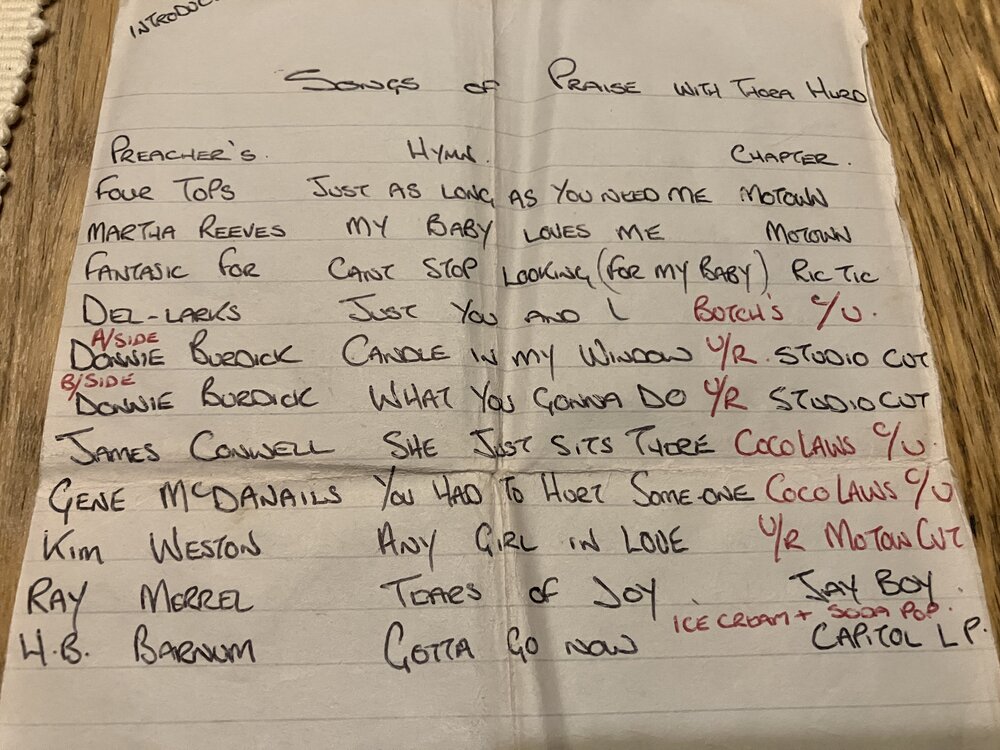 INTRODUC
SONGS OF PRAISE WITH THORA HURD
PREACHER'S. HYMN. CHAPTER.
FOUR TOPS JUST AS LONG AS YOU NEED ME MOTOWN
MARTHA REEVES MY BABY LOVES ME MOTOWN
FANTASIC FOR CANT STOP LOOKING (FOR MY BABY) RIC TIC
DEL-LARKS JUST YOU AND I BUTCH'S C/U.
A/SIDE
DONNIE BURDICK CANDLE IN MY WINDOW U/R. STUDIO CUT
B/SIDE
DONNIE BURDICK WHAT YOU GONNA DO U/R STUDIO CUT
JAMES CONWELL SHE JUST SITS THERE COCO LAWS C/U.
GENE McDANAILS YOU HAD TO HURT SOME-ONE COCO LAWS C/U
KIM WESTON ANY GIRL IN LOVE U/R MOTOWN CUT
RAY MERREL TEARS OF JOY JAY BOY.
ICE CREAM + SODA POP.
H.B. BARNUM GOTTA GO NOW CAPITOL L.P.